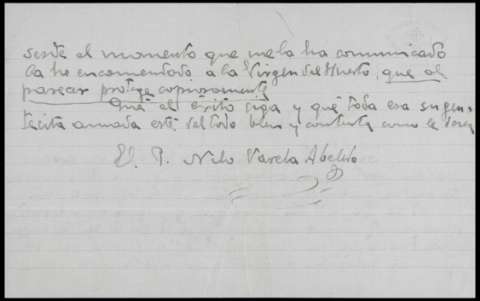 desde el momento que me la ha comunicado
la he encomendado a la Virgen del Huerto, que al
parecer protege copiosamente
Que el éxito siga y que toda esa su gen-
tecita amada esté del todo bien y contenta como le desea
El P. Nilo Varela